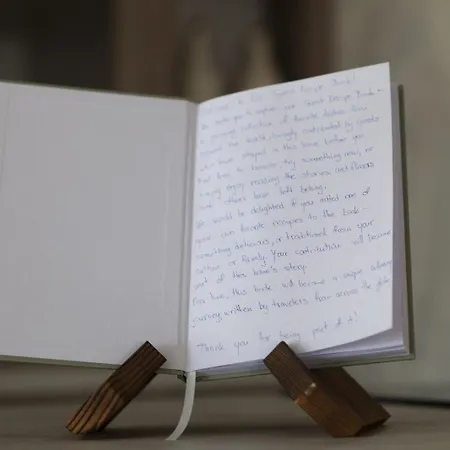 Welcome to our Guest Recipe Book!
We invite you to explore our Guest Recipe Book -
a growing collection of favorite dishes from
around the world, lovingly contributed by guests
who have stayed in this home before you.
Feel free to browse, try something new, or
simply enjoy reading the stories and flavors
others have left behind.
We would be delighted if you added one of
your own favorite recipes to the book -
something delicious, or traditional from your
culture or family. Your contribution will become
part of this home's story.
this book will become a unique culinary
journey, written by travelers from across the globe.
Thank you for being part of it!